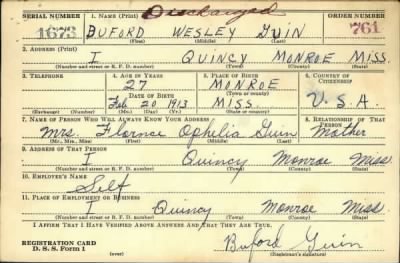 Discharged
SERIAL NUMBER 1. NAME (Print) ORDER NUMBER
1673 BUFORD WESLEY GUIN 761
(First) (Middle) (Last)
2. ADDRESS (Print)
1 QUINCY MONROE MISS.
(Number and street or R. F. D. number) (Town) (County) (State)
3. TELEPHONE 4. AGE IN YEARS 5. PLACE OF BIRTH 6. COUNTRY OF CITIZENSHIP
27 MONROE
DATE OF BIRTH (Town or county)
Feb 20 1913 MISS. U.S.A.
(Exchange) (Number) (Mo.) (Day) (Yr.) (State or country)
7. NAME OF PERSON WHO WILL ALWAYS KNOW YOUR ADDRESS 8. RELATIONSHIP OF THAT PERSON
Mrs. Ophelia Guin Mother
(Mr., Mrs., Miss) (First) (Middle) (Last)
9. ADDRESS OF THAT PERSON
1 Quincy Monroe Miss
(Number and street or R. F. D. number) (Town) (County) (State)
10. EMPLOYER'S NAME
Self
11. PLACE OF EMPLOYMENT OR BUSINESS
1 Quincy Monroe Miss
(Number and street or R. F. D. number) (Town) (County) (State)
I AFFIRM THAT I HAVE VERIFIED ABOVE ANSWERS AND THAT THEY ARE TRUE.
REGISTRATION CARD
D. S. S. Form 1 (over) Buford Guin
(Registrant's signature)